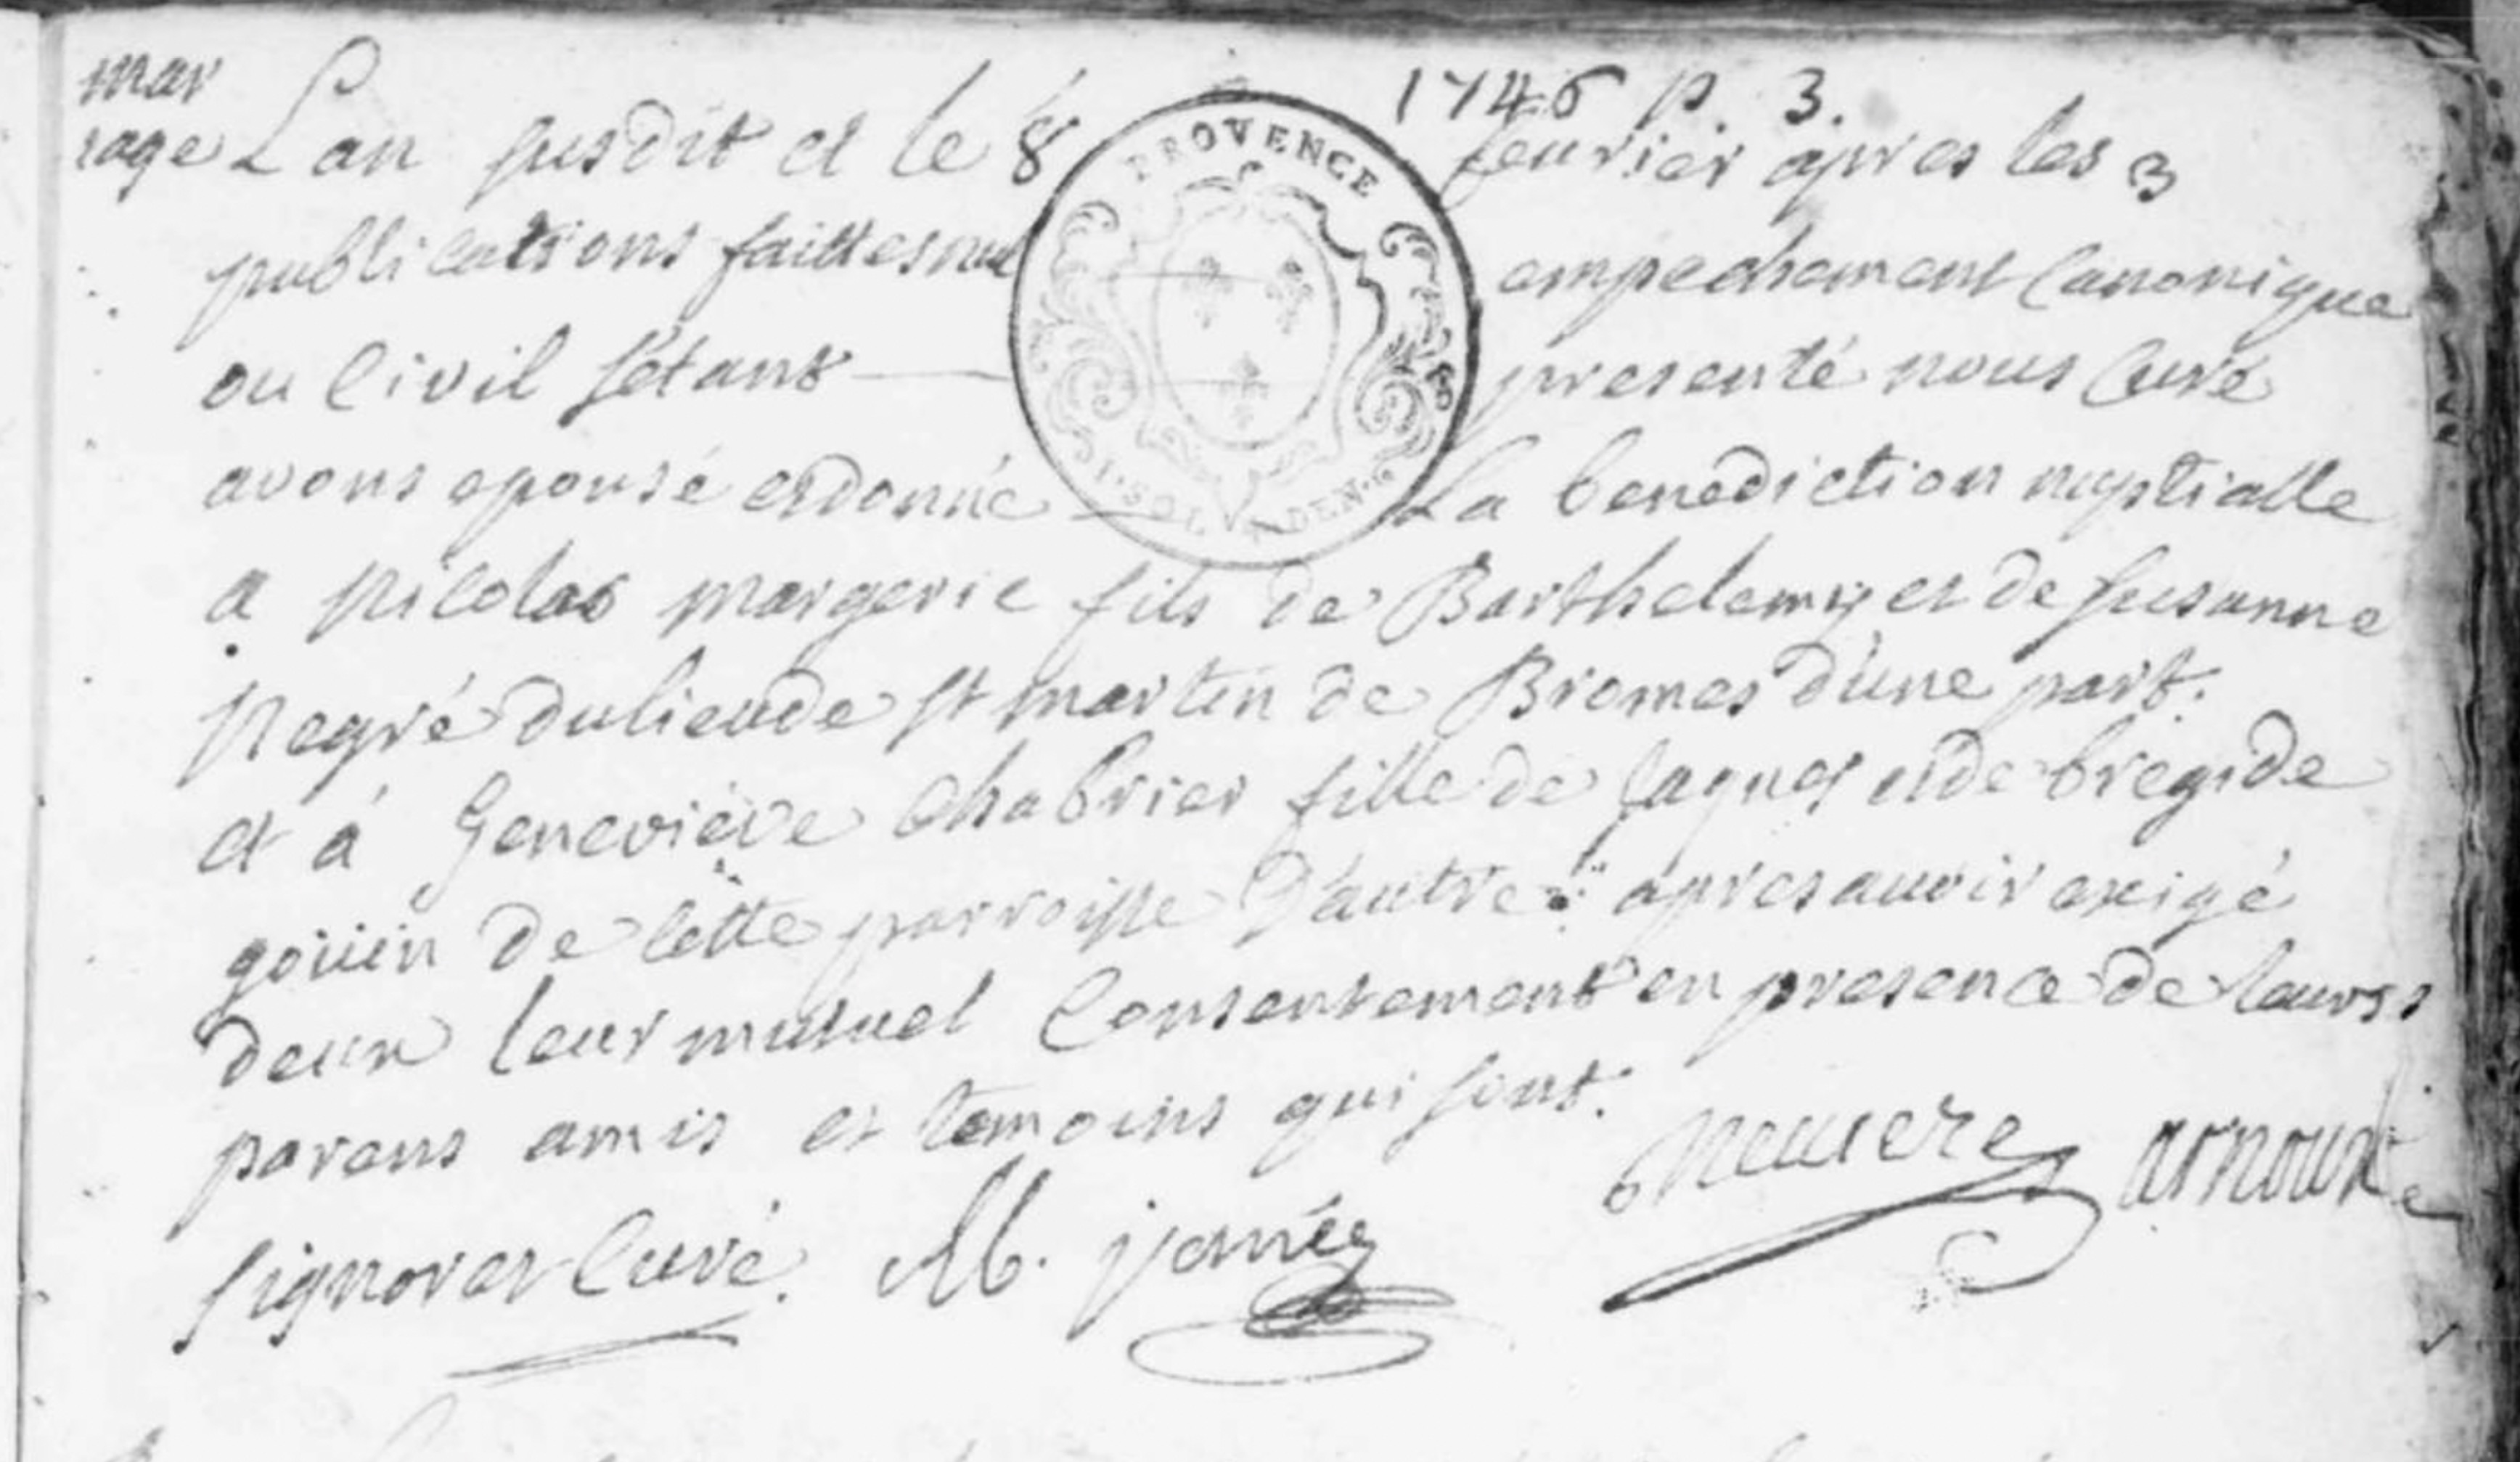 1746 p. 3.
mar
iage
L'an susdit et le 8 feurier apres les 3
PROVENCE
publications faittes nul empechement Canonique
ou Civil s'etant presenté nous Curé
avons epousé et donné La benediction nuptialle
I.SOL DEN.
a Nicolas Margerie fils de Barthelemy et de Susanne
Negré du lieu de St martin de Bromes d'une part.
et á Geneviéve Chabrier fille de Jaques et de bregide
goüin de cette parroisse d'autre: apres auoir exigé
deux leur mutuel Consentement en presence de leurs
parens amis et temoins qui sont.
signoret Curé. M. jannéy arnoux